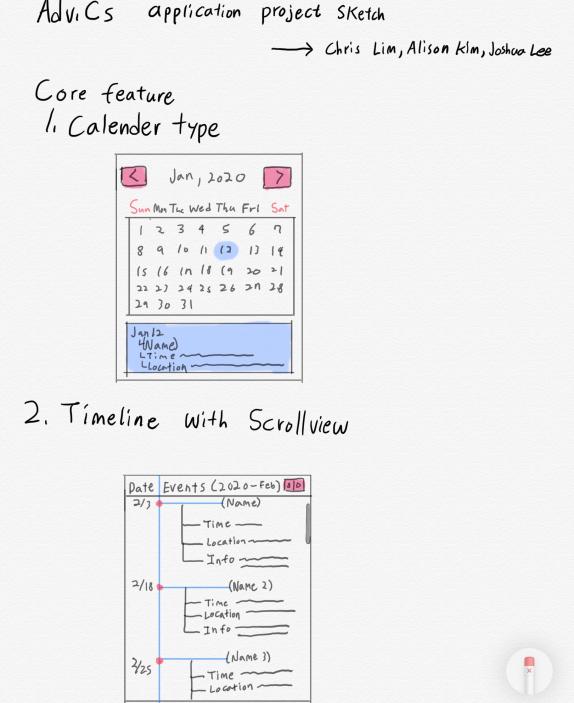 Adv. Cs application project Sketch
→ Chris Lim, Alison kim, Joshua Lee
Core feature
1. Calender type
< Jan, 2020 >
Sun Mon Tue Wed Thu Fri Sat
1 2 3 4 5 6 7
8 9 10 11 12 13 14
15 16 17 18 19 20 21
22 23 24 25 26 27 28
29 30 31
Jan 12
(Name)
Time
Location
2. Timeline with Scrollview
Date Events (2020-Feb)
2/3 (Name)
Time
Location
Info
2/18 (Name 2)
Time
Location
Info
2/25 (Name 3)
Time
Location